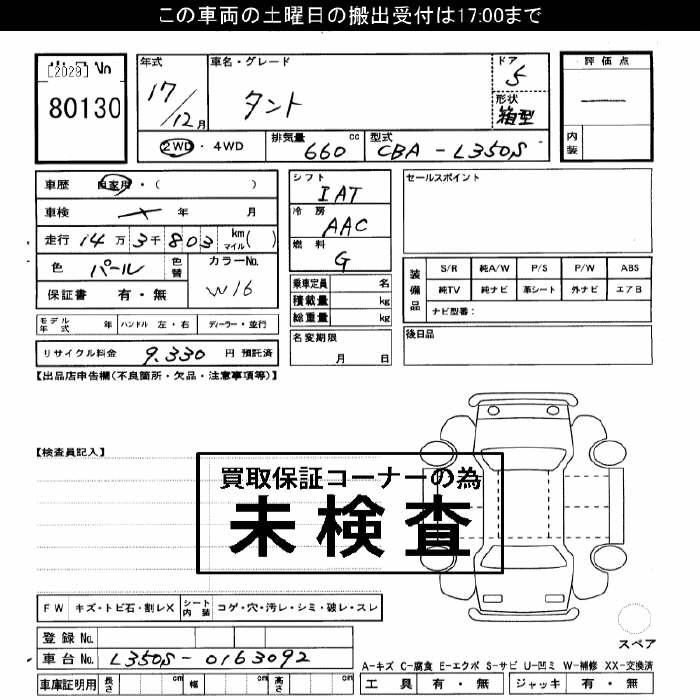 この車両の土曜日の搬出受付は17:00まで
[2029] No
80130
年式
17/12月
車名・グレード
タント
ドア
5
形状
箱型
評価点
―
内装
2WD・4WD
排気量 660 cc
型式 CBA-L350S
車歴 自家用・( )
車検 年 月
走行 14万3千803 km マイル( )
色 パール 色替
カラーNo. W16
保証書 有・無
シフト IAT
冷房 AAC
燃料 G
乗車定員 名
積載量 kg
総重量 kg
セールスポイント
装備品
S/R 純A/W P/S P/W ABS
純TV 純ナビ 革シート 外ナビ エアB
ナビ型番:
モデル年式 年 ハンドル 左・右 ディーラー・並行
名変期限 月 日
後日品
リサイクル料金 9,330 円 預託済
【出品店申告欄(不良箇所・欠品・注意事項等)】
【検査員記入】
買取保証コーナーの為
未検査
FW キズ・トビ石・割レX シート内装 コゲ・穴・汚レ・シミ・破レ・スレ
登録No.
車台No. L350S-0163092
スペア
A-キズ C-腐食 E-エクボ S-サビ U-凹ミ W-補修 XX-交換済
車庫証明用 長さ cm 幅 cm 高さ cm
工具 有・無 ジャッキ 有・無